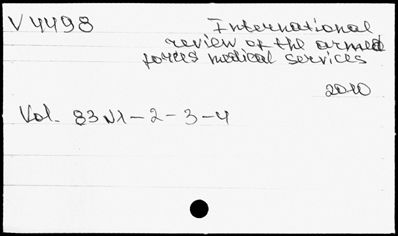 V 4498 International
review of the armed
forces medical services
2010
Vol. 83 N1-2-3-4